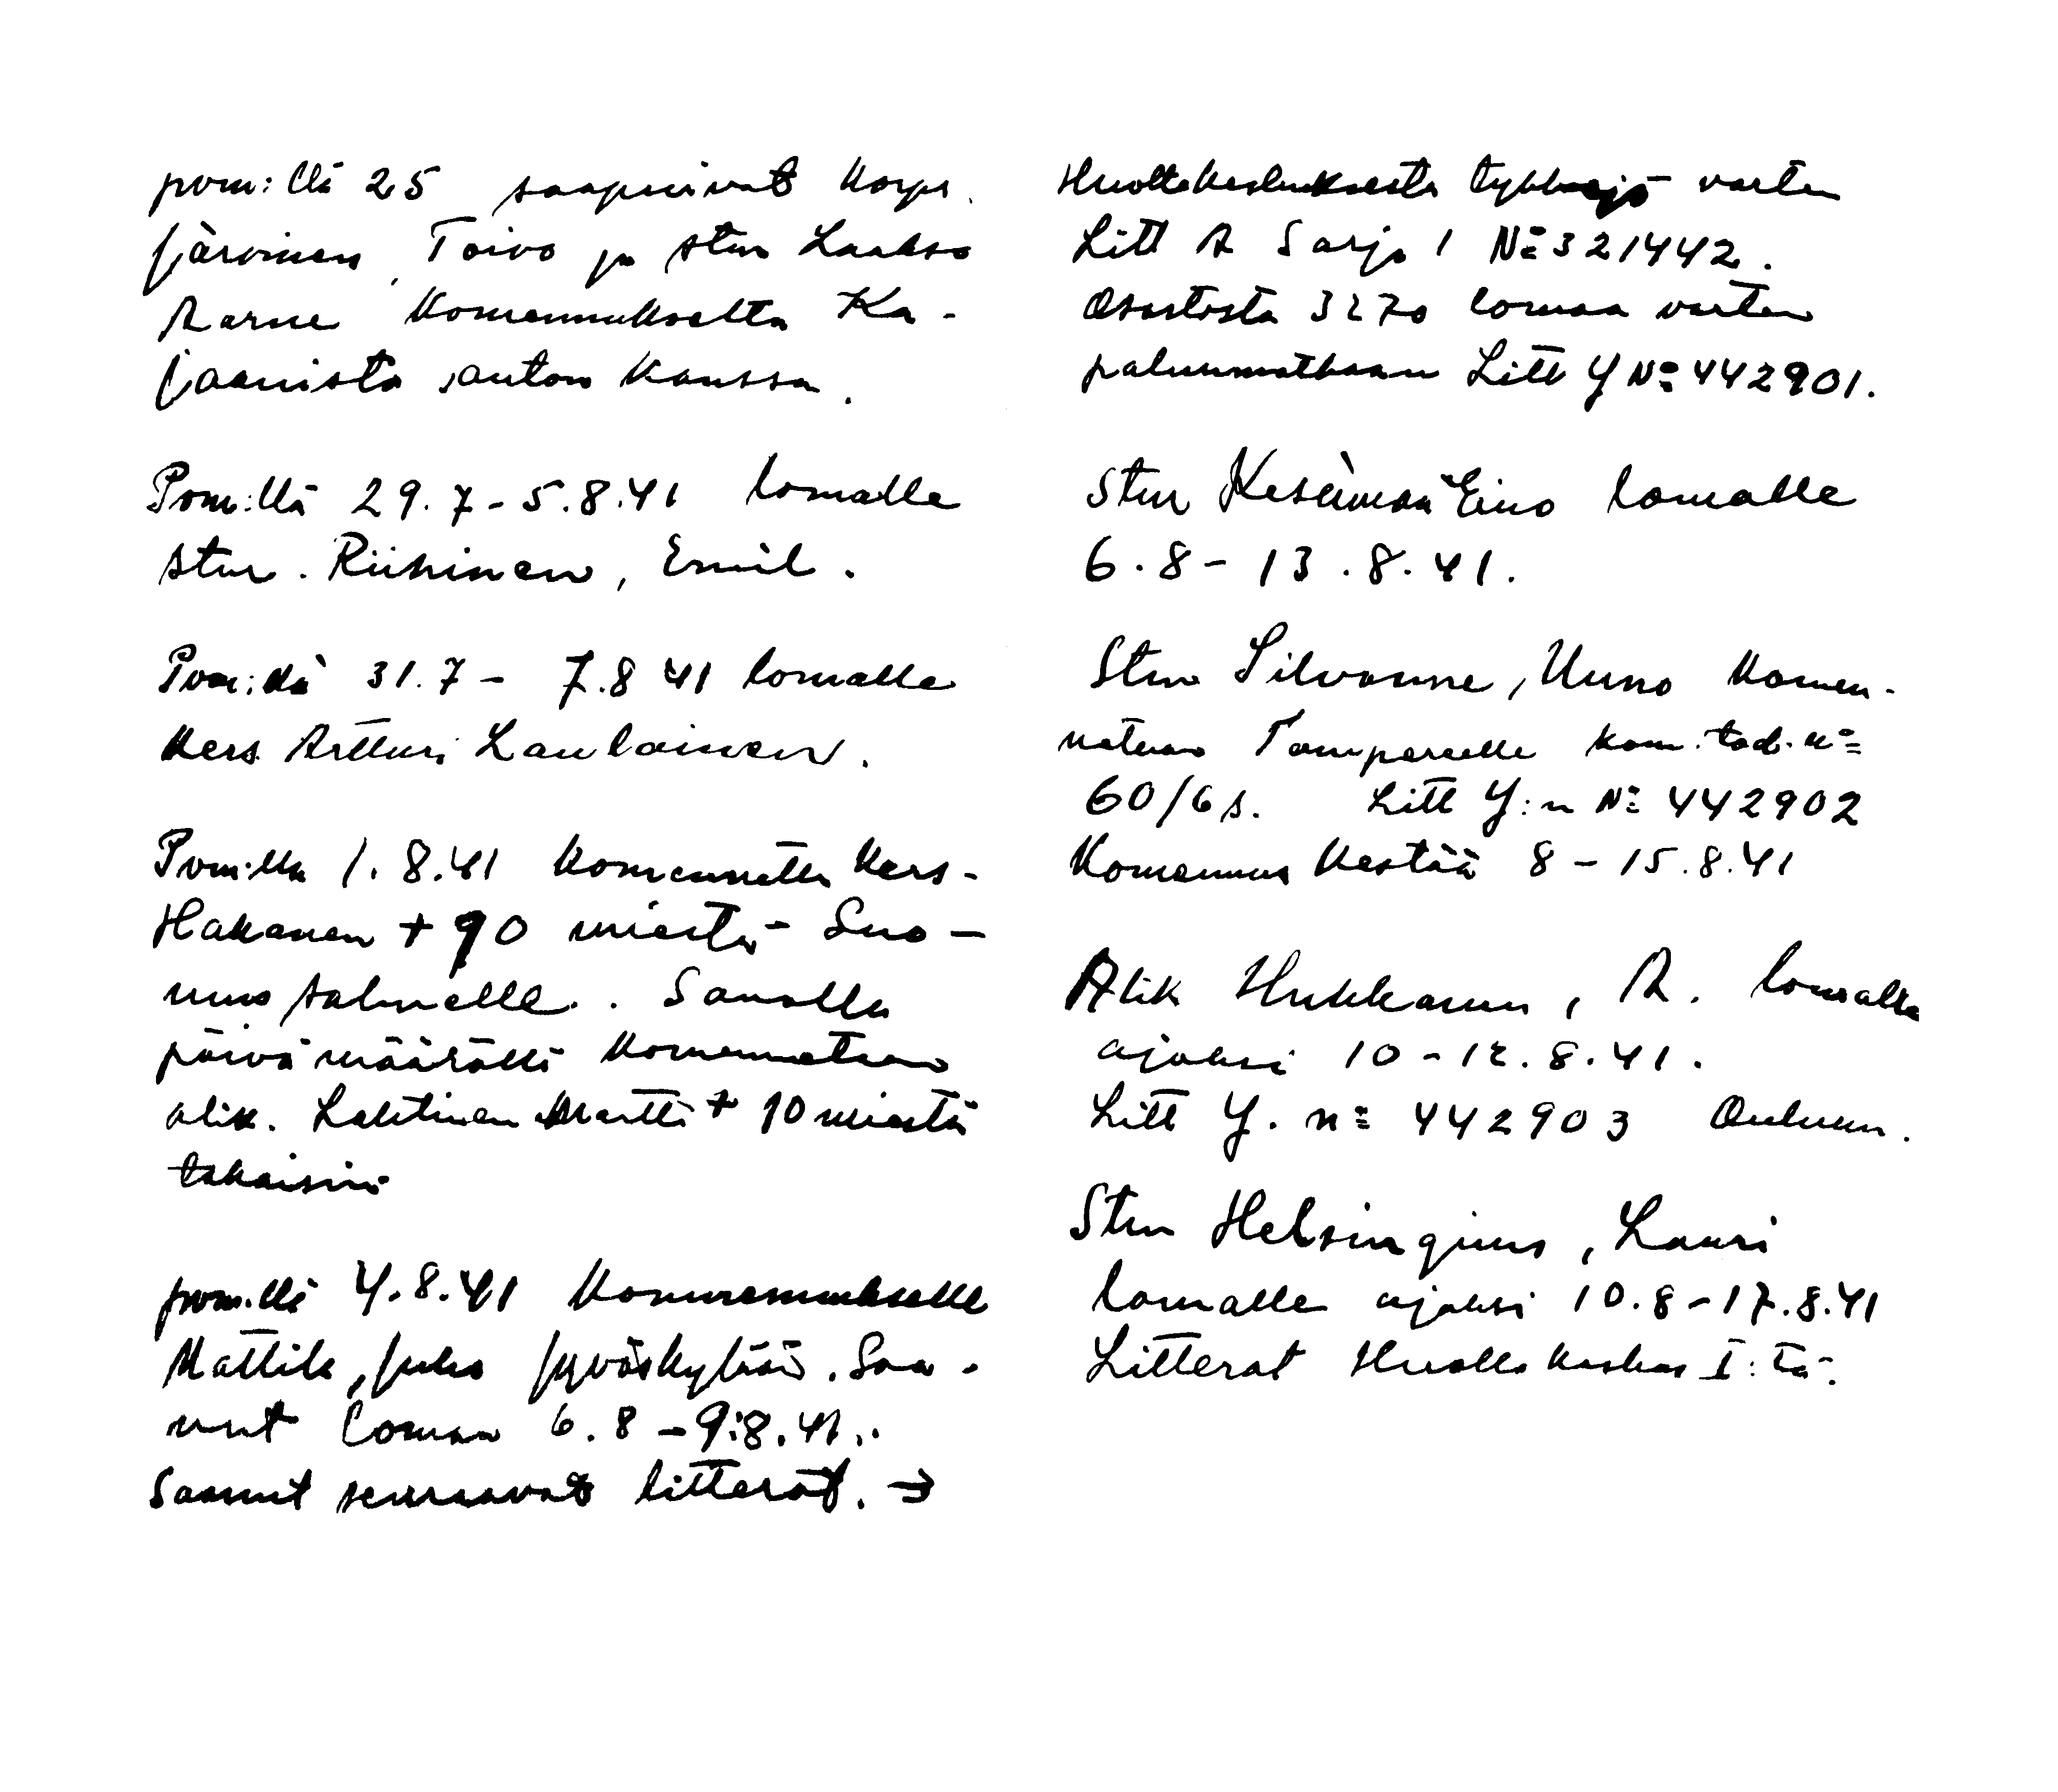 pvm:llä 25 saapuivat korpr.
Järvinen, Toivo ja stm Laakso
Aarne komennukselta Ka-
jaanista auton kanssa.
Pvm:llä 29.7-5.8.41 lomalle
stm. Riihinen, Emil.
Pvm:llä 31.7 - 7.8 41 lomalle
kers. Artturi Laulainen.
Pvm:llä 1.8.41 komennettu kers-
Hakanen + 90 miestä Suo-
mussalmelle. Samalla
päivämäärällä komennetaan
alik. Lahtinen Martti + 10 miestä
takaisin
pvm.llä 4.8.41 komennukselle
Mattila, Juho Jyväskylään. Saa-
nut loman 6.8 - 9.8.41.
Saanut seuraavat litterat. →
Huoltokeskuksesta työkomennusta varten
Litt A Sarja 1 No 321442.
Osastosta 3270 lomaa varten
paluumatkaan Litt Y No 442901.
Stm Kesämaa Eino lomalle
6.8 - 13.8.41.
Stm Silvonne, Uuno komen-
netaan Tampereelle kom.tod. no
60/6 s. Litt Y:n No 442902
Komennus kestää 8 - 15.8.41
Alik Hukkanen, A. lomalla
ajaksi 10 - 12.8.41.
Litt Y. no 442903 Ouluun.
Stm Helsingius, Lauri
lomalle ajaksi 10.8-17.8.41
Litterat Huoltokeskus I:tä.